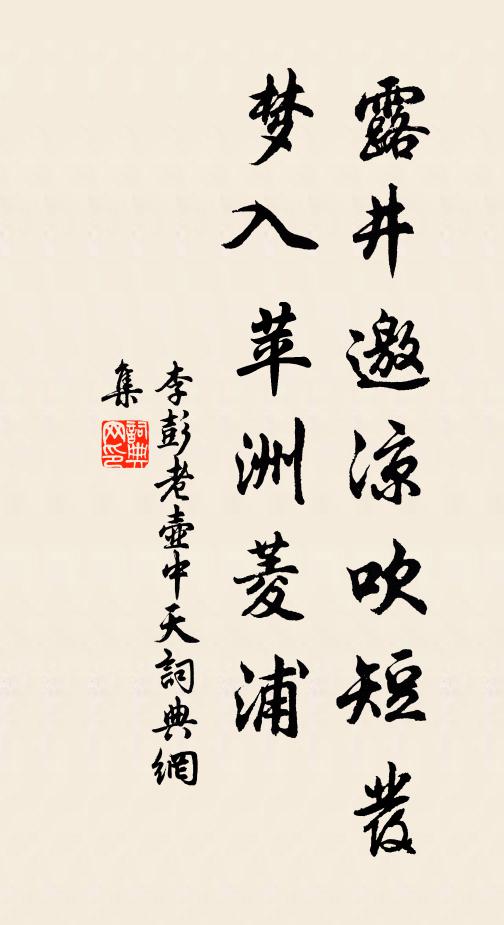 露井邀涼吹短發
梦入苹洲菱浦
李彭老壺中天詞典網
集
詞典
网印